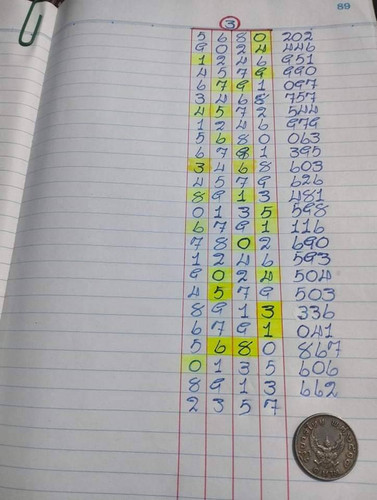 89
3
5 6 8 0 202
9 0 2 4 446
1 2 4 6 951
4 5 7 9 990
6 7 9 1 097
3 4 6 8 757
4 5 7 2 544
1 2 4 6 979
5 6 8 0 063
6 7 9 1 395
3 4 6 8 603
4 5 7 9 626
8 9 1 3 481
0 1 3 5 598
6 7 9 1 116
7 8 0 2 690
1 2 4 6 593
9 0 2 4 504
4 5 7 9 503
8 9 1 3 336
6 7 9 1 041
5 6 8 0 867
0 1 3 5 606
8 9 1 3 662
2 3 5 7